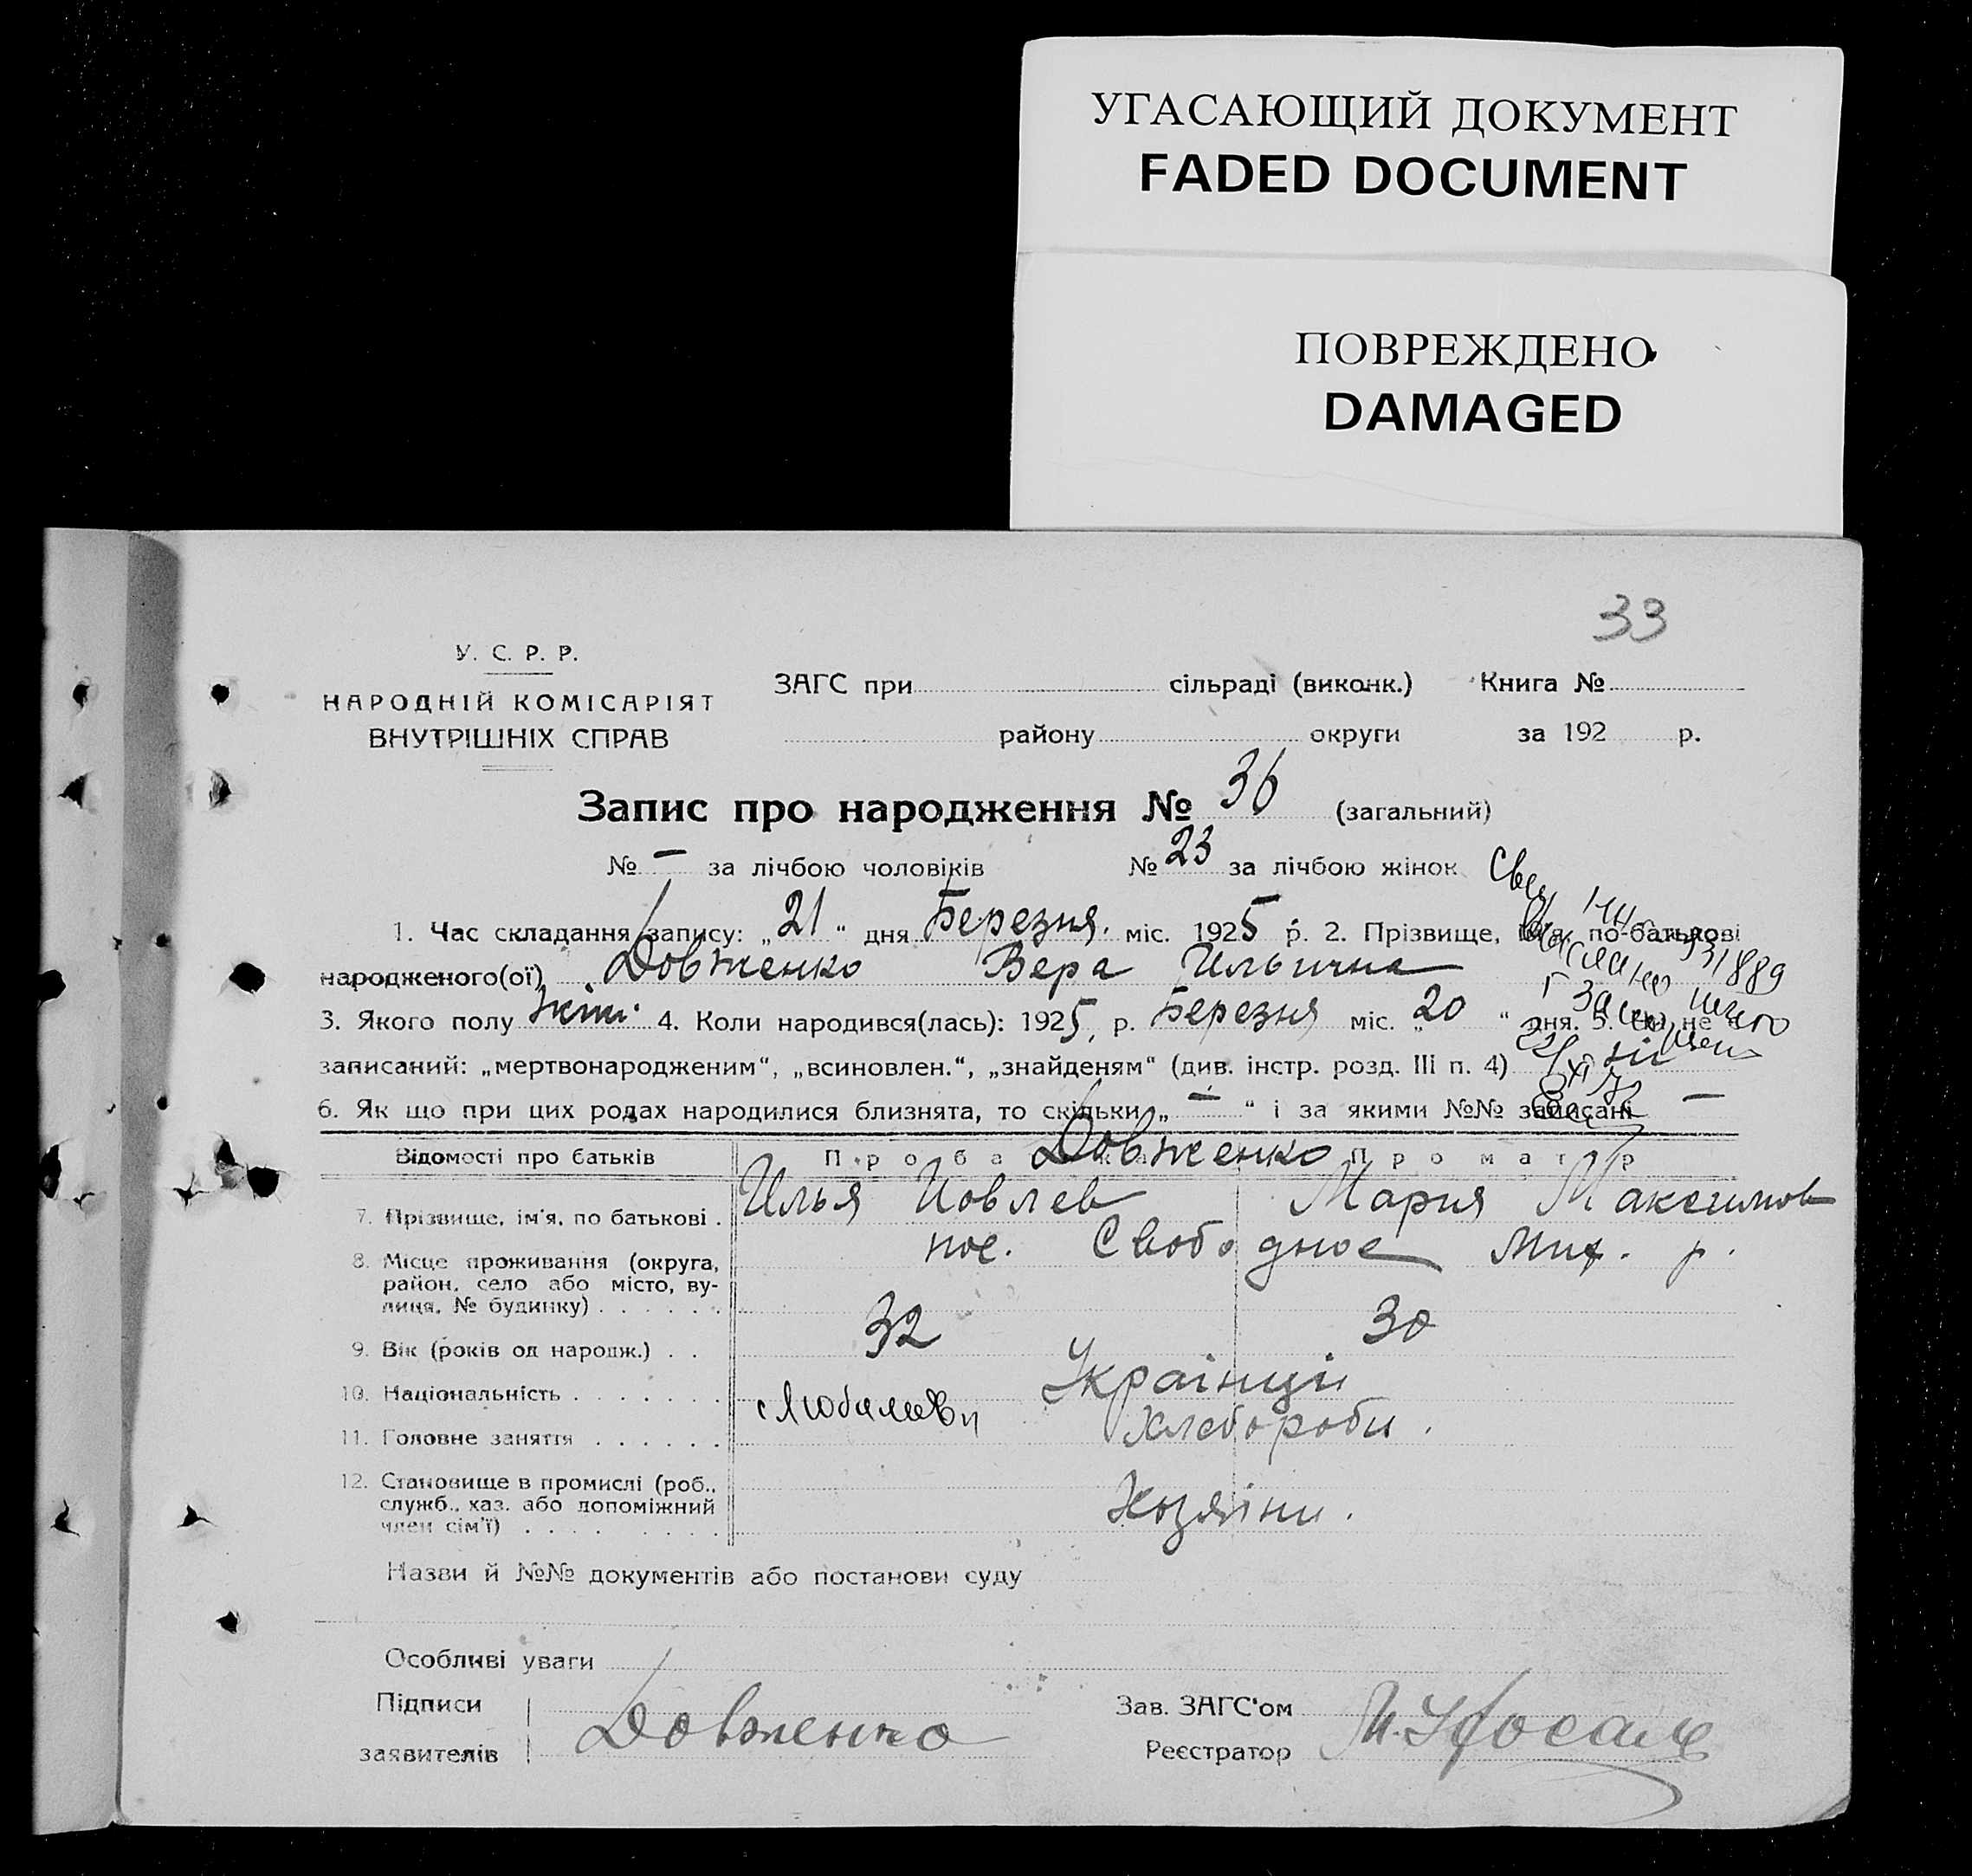 УГАСАЮЩИЙ ДОКУМЕНТ
FADED DOCUMENT
ПОВРЕЖДЕНО
DAMAGED
33
У. С. Р. Р.
НАРОДНІЙ КОМІСАРІЯТ
ВНУТРІШНІХ СПРАВ
ЗАГС при сільраді (виконк.) Книга №
району округи за 192 р.
Запис про народження № 36 (загальний)
№ – за лічбою чоловіків № 23 за лічбою жінок
1. Час складання запису: „21“ дня Березня. міс. 1925 р. 2. Прізвище, ім'я, по-батькові
народженого(ої) Довженко Вера Ильична
3. Якого полу жін. 4. Коли народився(лась): 1925, р. Березня міс. „20“ дня. 5. Чи не є
записаний: „мертвонародженим“, „всиновлен.“, „знайденям“ (див. інстр. розд. III п. 4)
6. Як що при цих родах народилися близнята, то скільки „–“ і за якими №№ записані –
Відомості про батьків Про батька Про матір
Довженко
7. Прізвище, ім'я, по батькові . Илья Иовлев Мария Максимов
8. Місце проживання (округа, район, село або місто, вулиця, № будинку) . . . . . . пос. Свободное р.
9. Вік (років од народж.) . . 32 30
10. Національність . . . . . . Українци
11. Головне заняття . . . . . . хлебороби.
12. Становище в промислі (роб., служб., хаз. або допоміжний член сім'ї) . . . . . . . . Хозяіни.
Назви й №№ документів або постанови суду
Особливі уваги
Підписи заявителів Довженко
Зав. ЗАГС'ом
Реєстратор